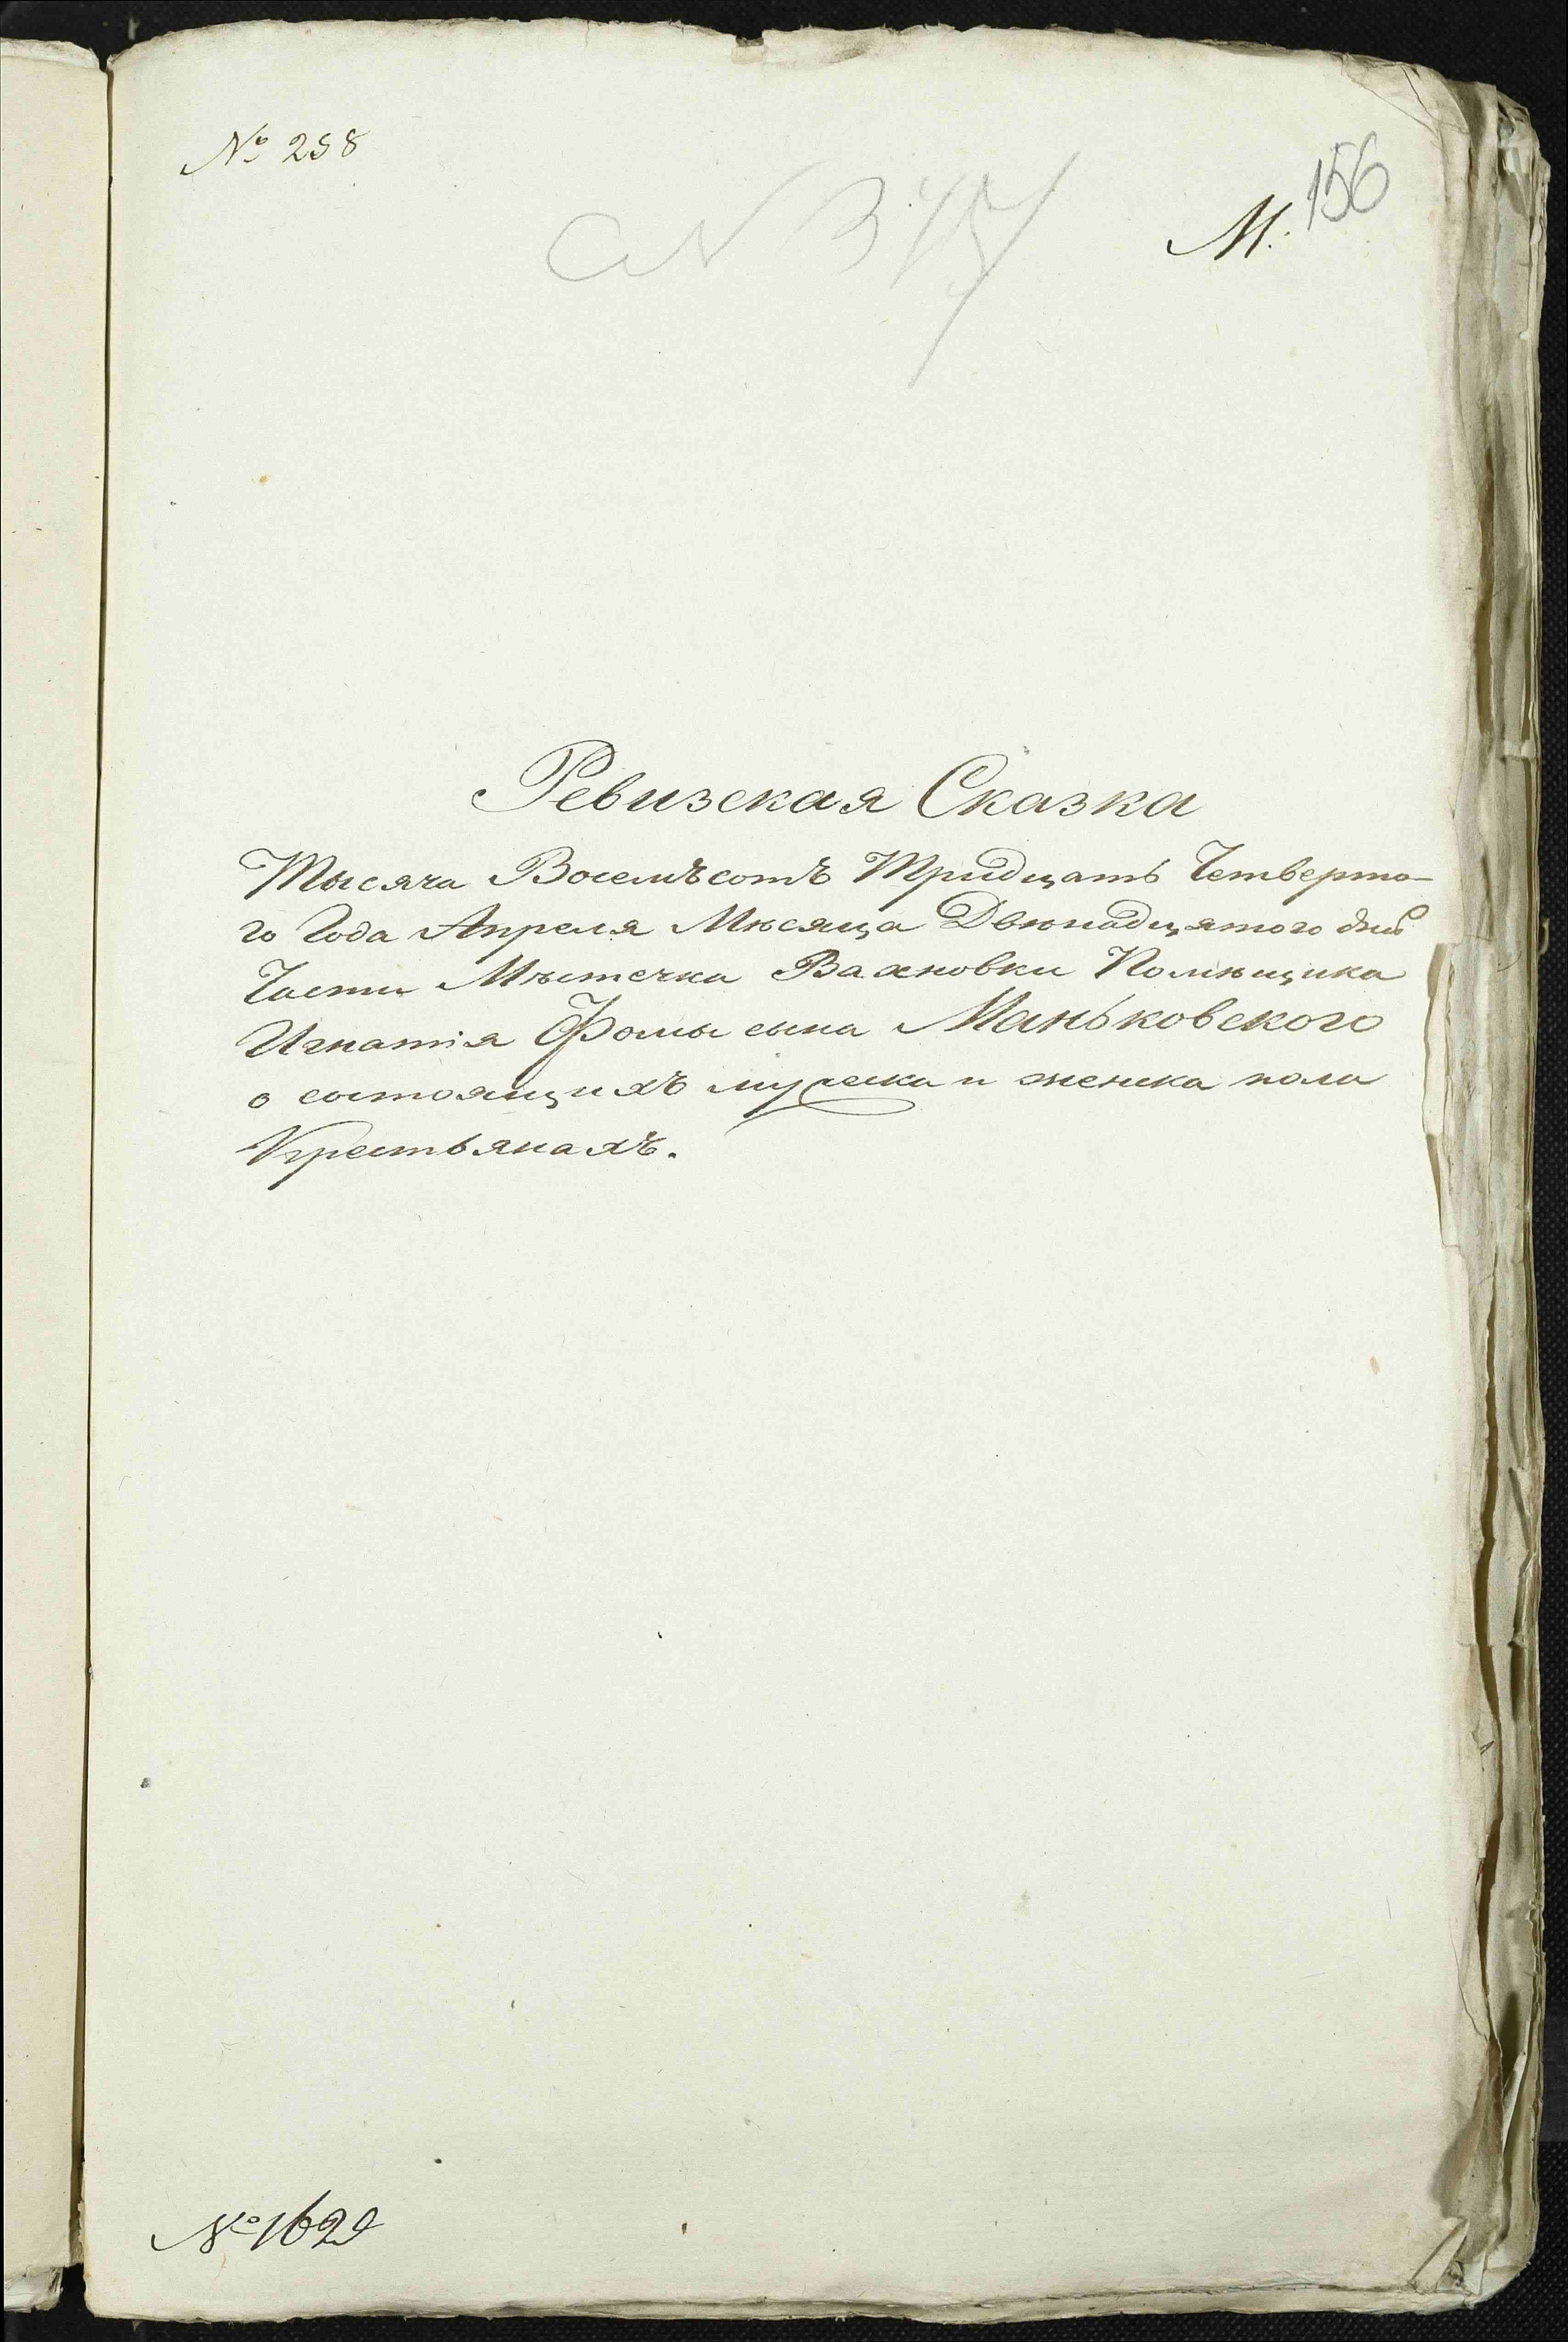 № 258
156
М.
Ревизская Сказка
Тысяча Восемъсотъ Тридцать Четверта-
го Года Апреля Мѣсяца Двѣнадцятого дня
Части Мѣстечка Вахновки Помѣщика
Игнатія Фомы сына Маньковского
о состоящихъ мужеска и женска пола
Крестьянахъ.